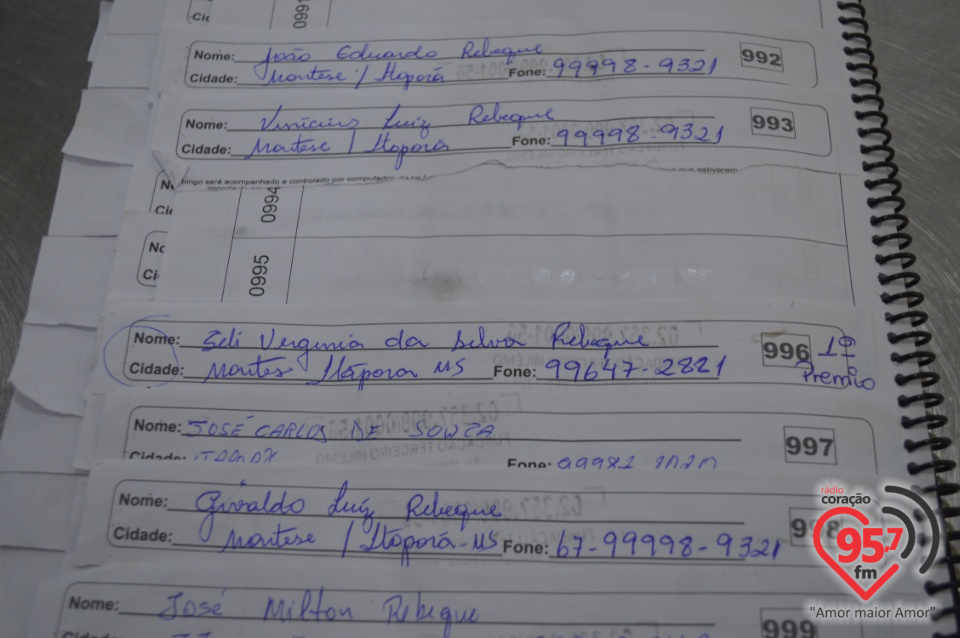 0991
Nome: João Eduardo Rebeque 992
Cidade: Montese / Itaporã Fone: 99998-9321
Nome: Vinicius Luiz Rebeque 993
Cidade: Montese / Itaporã Fone: 99998-9321
bingo será acompanhado e controlado por computador
0994
0995
Nome: Seli Verginia da Silva Rebeque 996 1º
Cidade: Montes Itapora MS Fone: 99647-2821 Premio
Nome: JOSÉ CARLOS DE SOUZA 997
Cidade: Fone:
Nome: Givaldo Luiz Rebeque 998
Cidade: Montese / Itaporã-MS Fone: 67-99998-9321
Nome: José Milton Rebeque 999
rádio
coração
95,7
fm
"Amor maior Amor"